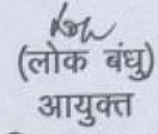 (लोक बंधु)
आयुक्त